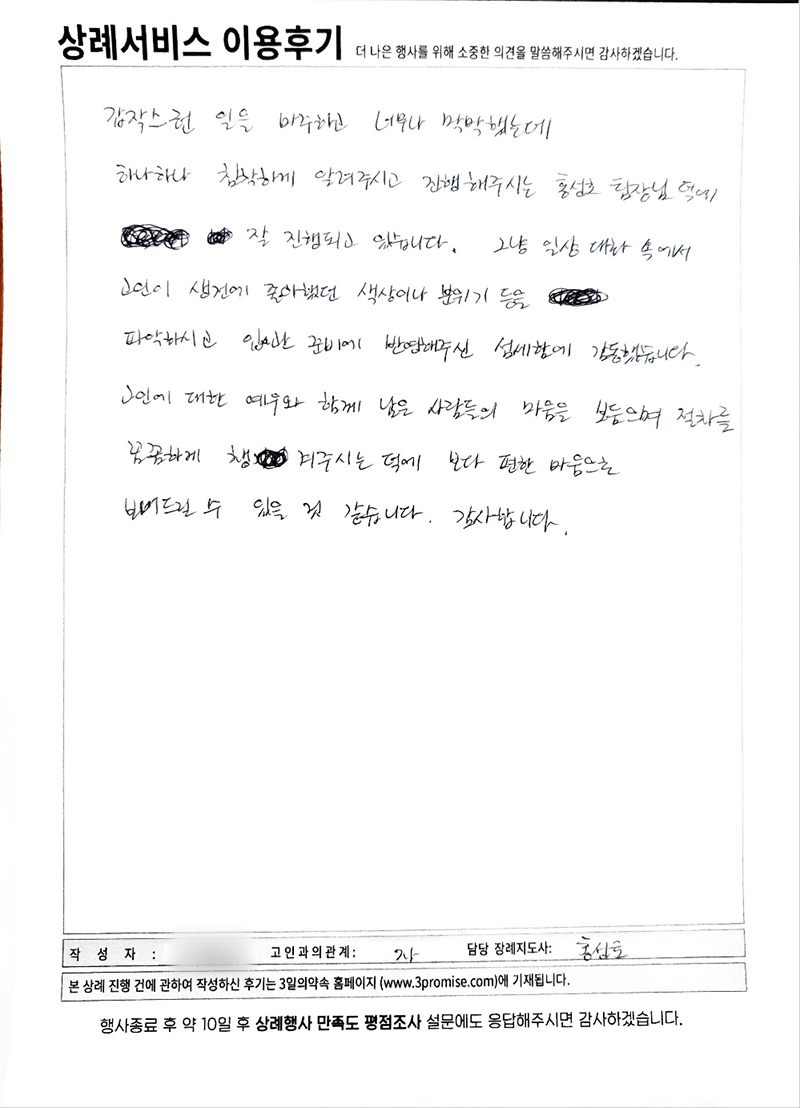 상례서비스 이용후기 더 나은 행사를 위해 소중한 의견을 말씀해주시면 감사하겠습니다.
갑작스런 일을 마주하고 너무나 막막했는데
하나하나 침착하게 알려주시고 진행해주시는 홍섭호 팀장님 덕에
잘 진행되고 있습니다. 그냥 일상 대화 속에서
고인이 생전에 좋아했던 색상이나 분위기 등을
파악하시고 입관 준비에 반영해주신 섬세함에 감동했습니다.
고인에 대한 예우와 함께 남은 사람들의 마음을 보듬으며 절차를
꼼꼼하게 챙겨주시는 덕에 보다 편한 마음으로
보내드릴 수 있을 것 같습니다. 감사합니다.
작 성 자 : 고인과의관계: 자 담당 장례지도사: 홍섭호
본 상례 진행 건에 관하여 작성하신 후기는 3일의약속 홈페이지 (www.3promise.com)에 기재됩니다.
행사종료 후 약 10일 후 상례행사 만족도 평점조사 설문에도 응답해주시면 감사하겠습니다.